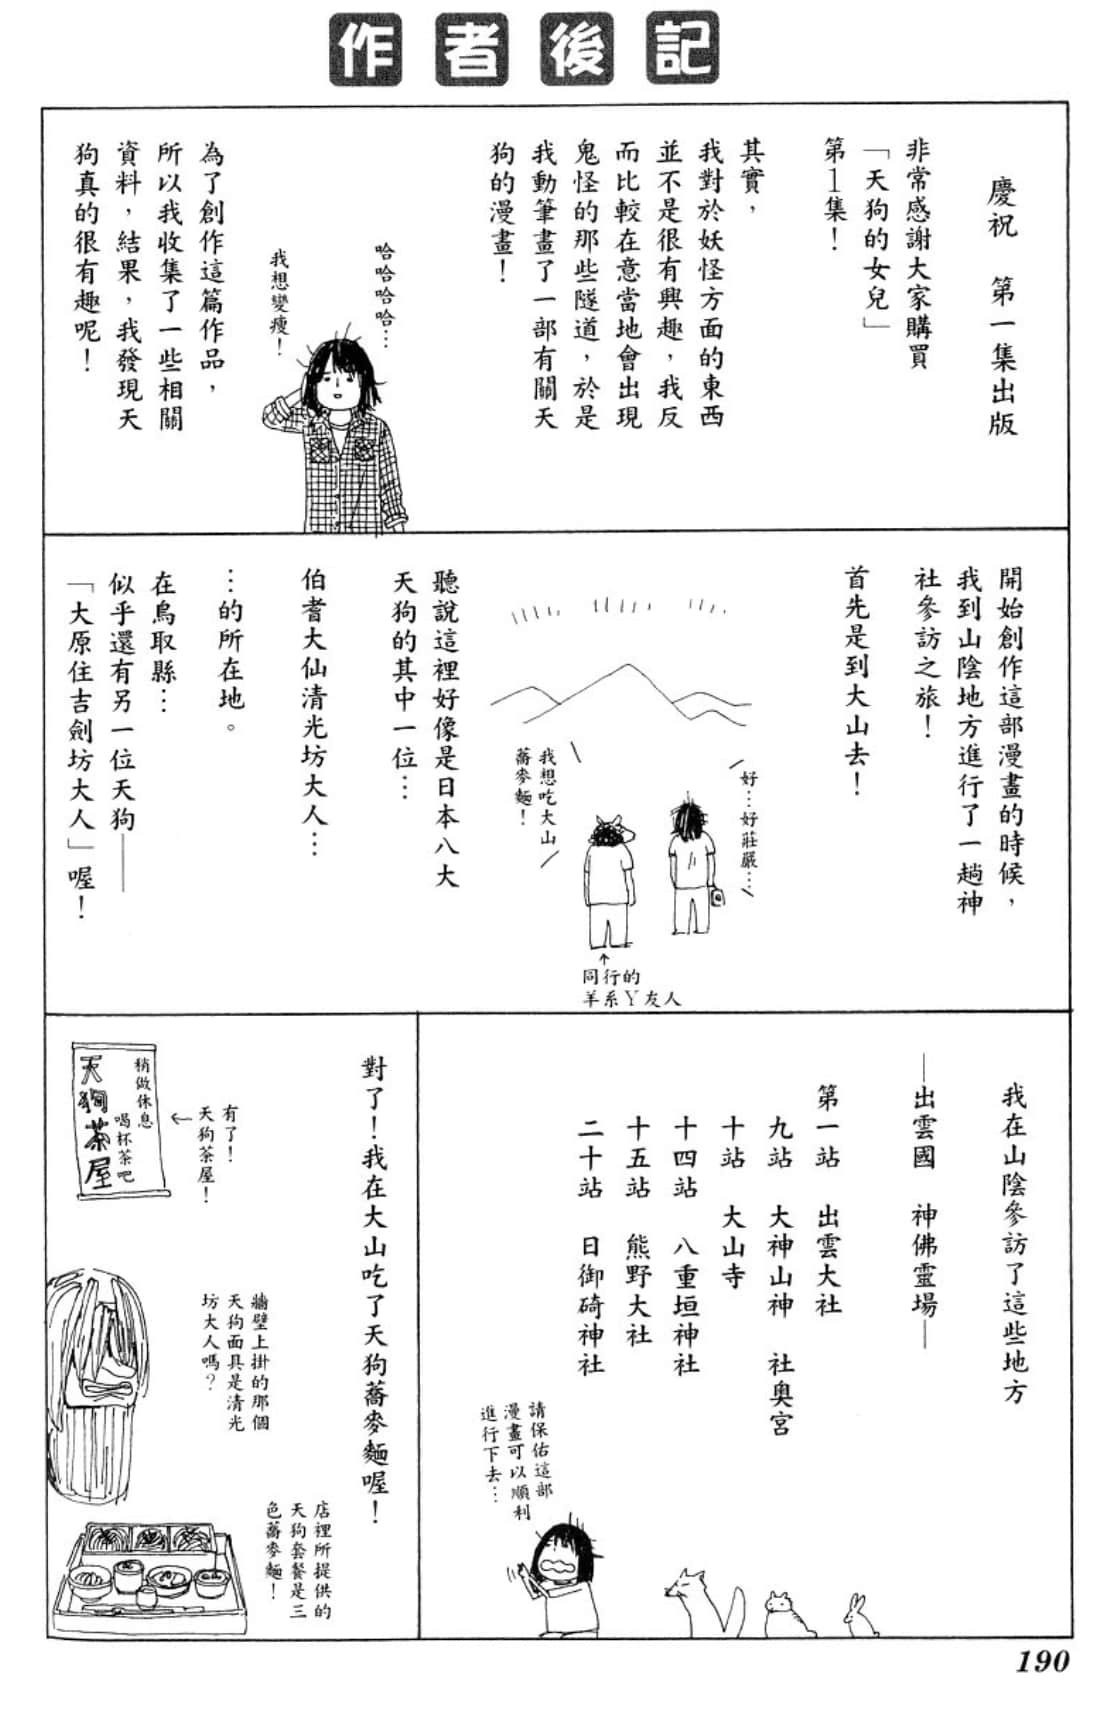 作者後記
慶祝　第一集出版
非常感謝大家購買
「天狗的女兒」
第1集！
其實，
我對於妖怪方面的東西
並不是很有興趣，我反
而比較在意當地會出現
鬼怪的那些隧道，於是
我動筆畫了一部有關天
狗的漫畫！
哈哈哈哈…
我想變瘦！
為了創作這篇作品，
所以我收集了一些相關
資料，結果，我發現天
狗真的很有趣呢！
開始創作這部漫畫的時候，
我到山陰地方進行了一趟神
社參訪之旅！
首先是到大山去！
好…好莊嚴…
我想吃大山
蕎麥麵！
↑
同行的
羊系Ｙ友人
聽說這裡好像是日本八大
天狗的其中一位…
伯耆大仙清光坊大人…
…的所在地。
在鳥取縣…
似乎還有另一位天狗——
「大原住吉劍坊大人」喔！
我在山陰參訪了這些地方
—出雲國　神佛靈場—
第一站　出雲大社
九站　大神山神　社奧宮
十站　大山寺
十四站　八重垣神社
十五站　熊野大社
二十站　日御碕神社
請保佑這部
漫畫可以順利
進行下去…
對了！我在大山吃了天狗蕎麥麵喔！
有了！
天狗茶屋！
←
稍做休息
喝杯茶吧
天狗茶屋
牆壁上掛的那個
天狗面具是清光
坊大人嗎？
店裡所提供的
天狗套餐是三
色蕎麥麵！
190